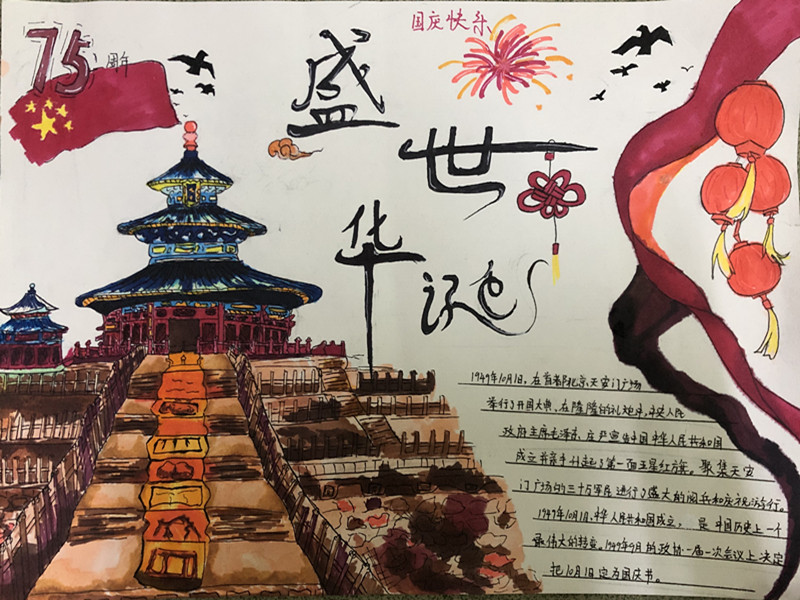 国庆快乐
75周年
盛世
华诞
1949年10月1日，在首都北京天安门广场
举行了开国大典，在隆隆的礼炮中，中央人民
政府主席毛泽东庄严宣告中国中华人民共和国
成立并亲手升起了第一面五星红旗。聚集天安
门广场的三十万军民进行了盛大的阅兵和庆祝游行。
1949年10月1日，中华人民共和国成立，是中国历史上一个
最伟大的转变。1949年9月的政协一届一次会议上决定
把10月1日定为国庆节。